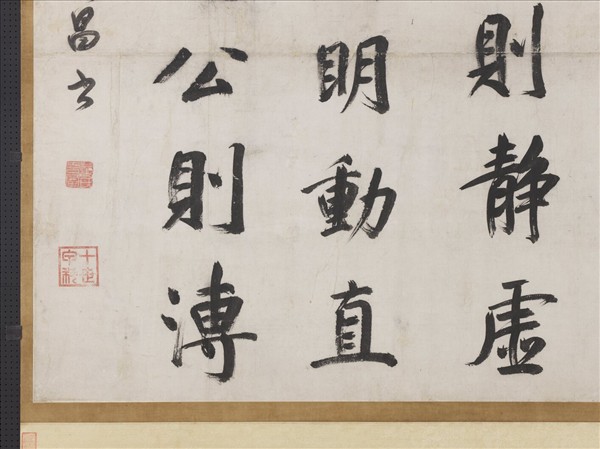 則靜虛
明動直
公則溥
昌書